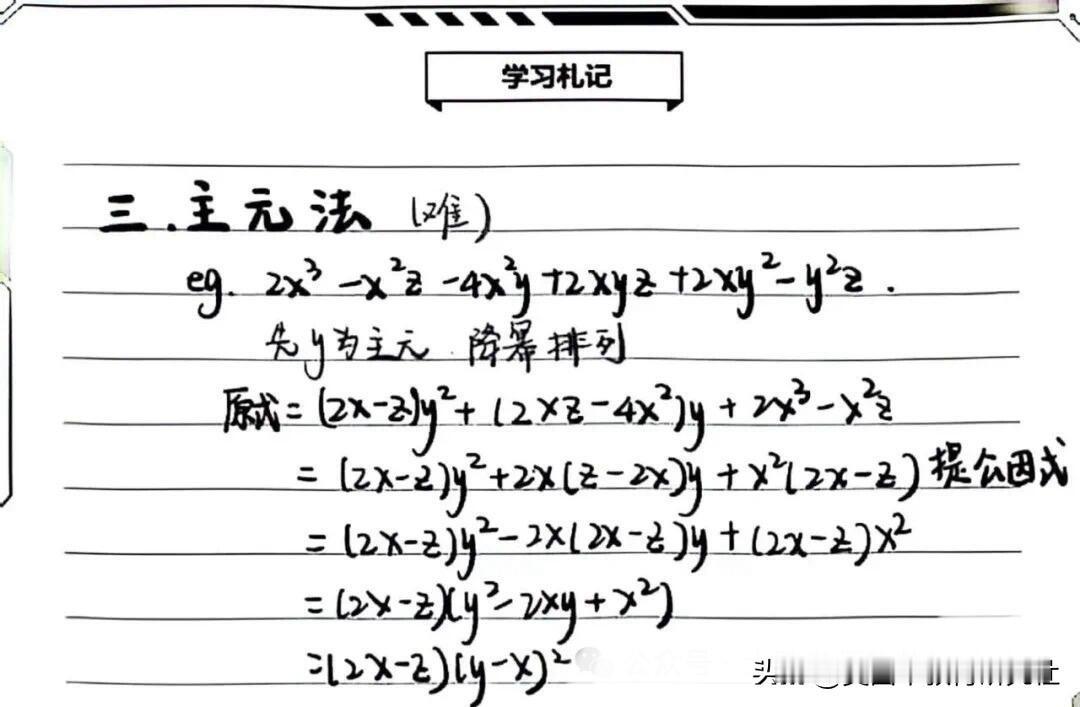 学习札记
三.主元法(难)
eg. 2x³-x²z-4x²y+2xyz+2xy²-y²z.
先y为主元.降幂排列
原式=(2x-z)y²+(2xz-4x²)y+2x³-x²z
=(2x-z)y²+2x(z-2x)y+x²(2x-z)提公因式
=(2x-z)y²-2x(2x-z)y+(2x-z)x²
=(2x-z)(y²-2xy+x²)
=(2x-z)(y-x)²
公众号